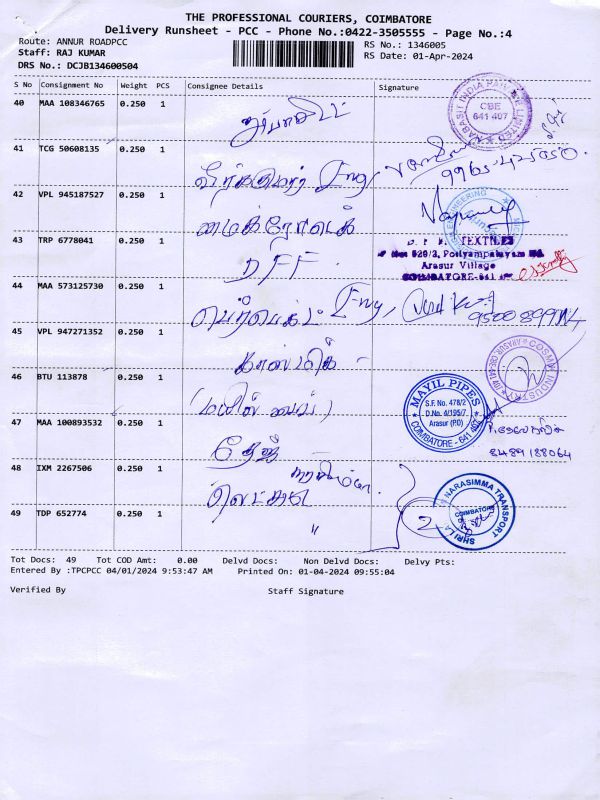 THE PROFESSIONAL COURIERS, COIMBATORE
Delivery Runsheet - PCC - Phone No.:0422-3505555 - Page No.:4
Route: ANNUR ROADPCC
RS No.: 1346005
Staff: RAJ KUMAR
RS Date: 01-Apr-2024
DRS No.: DCJB134600504
S No Consignment No Weight PCS Consignee Details Signature
40 MAA 108346765 0.250 1
CBE
641 407
41 TCG 50608135 0.250 1
Eng,
42 VPL 945187527 0.250 1
மைக்ரோடெக்
43 TRP 6778041 0.250 1
DFF
TEXTILES
Arasur Village
44 MAA 573125730 0.250 1
பெர்பெக்ட் Eng,
45 VPL 947271352 0.250 1
காஸ்மிக்
COSMIC INDUSTRY
46 BTU 113878 0.250 1
(மயில் பைப்)
MAYIL PIPES
S.F. No. 478/2
D.No. 6/195/7
Arasur (P.O)
COIMBATORE - 641 407
47 MAA 100893532 0.250 1
தேஜ்
8489188064
48 IXM 2267506 0.250 1
SHRI LA NARASIMMA TRANSPORT
COIMBATORE
49 TDP 652774 0.250 1
"
2
Tot Docs: 49 Tot COD Amt: 0.00 Delvd Docs: Non Delvd Docs: Delvy Pts:
Entered By :TPCPCC 04/01/2024 9:53:47 AM Printed On: 01-04-2024 09:55:04
Verified By Staff Signature